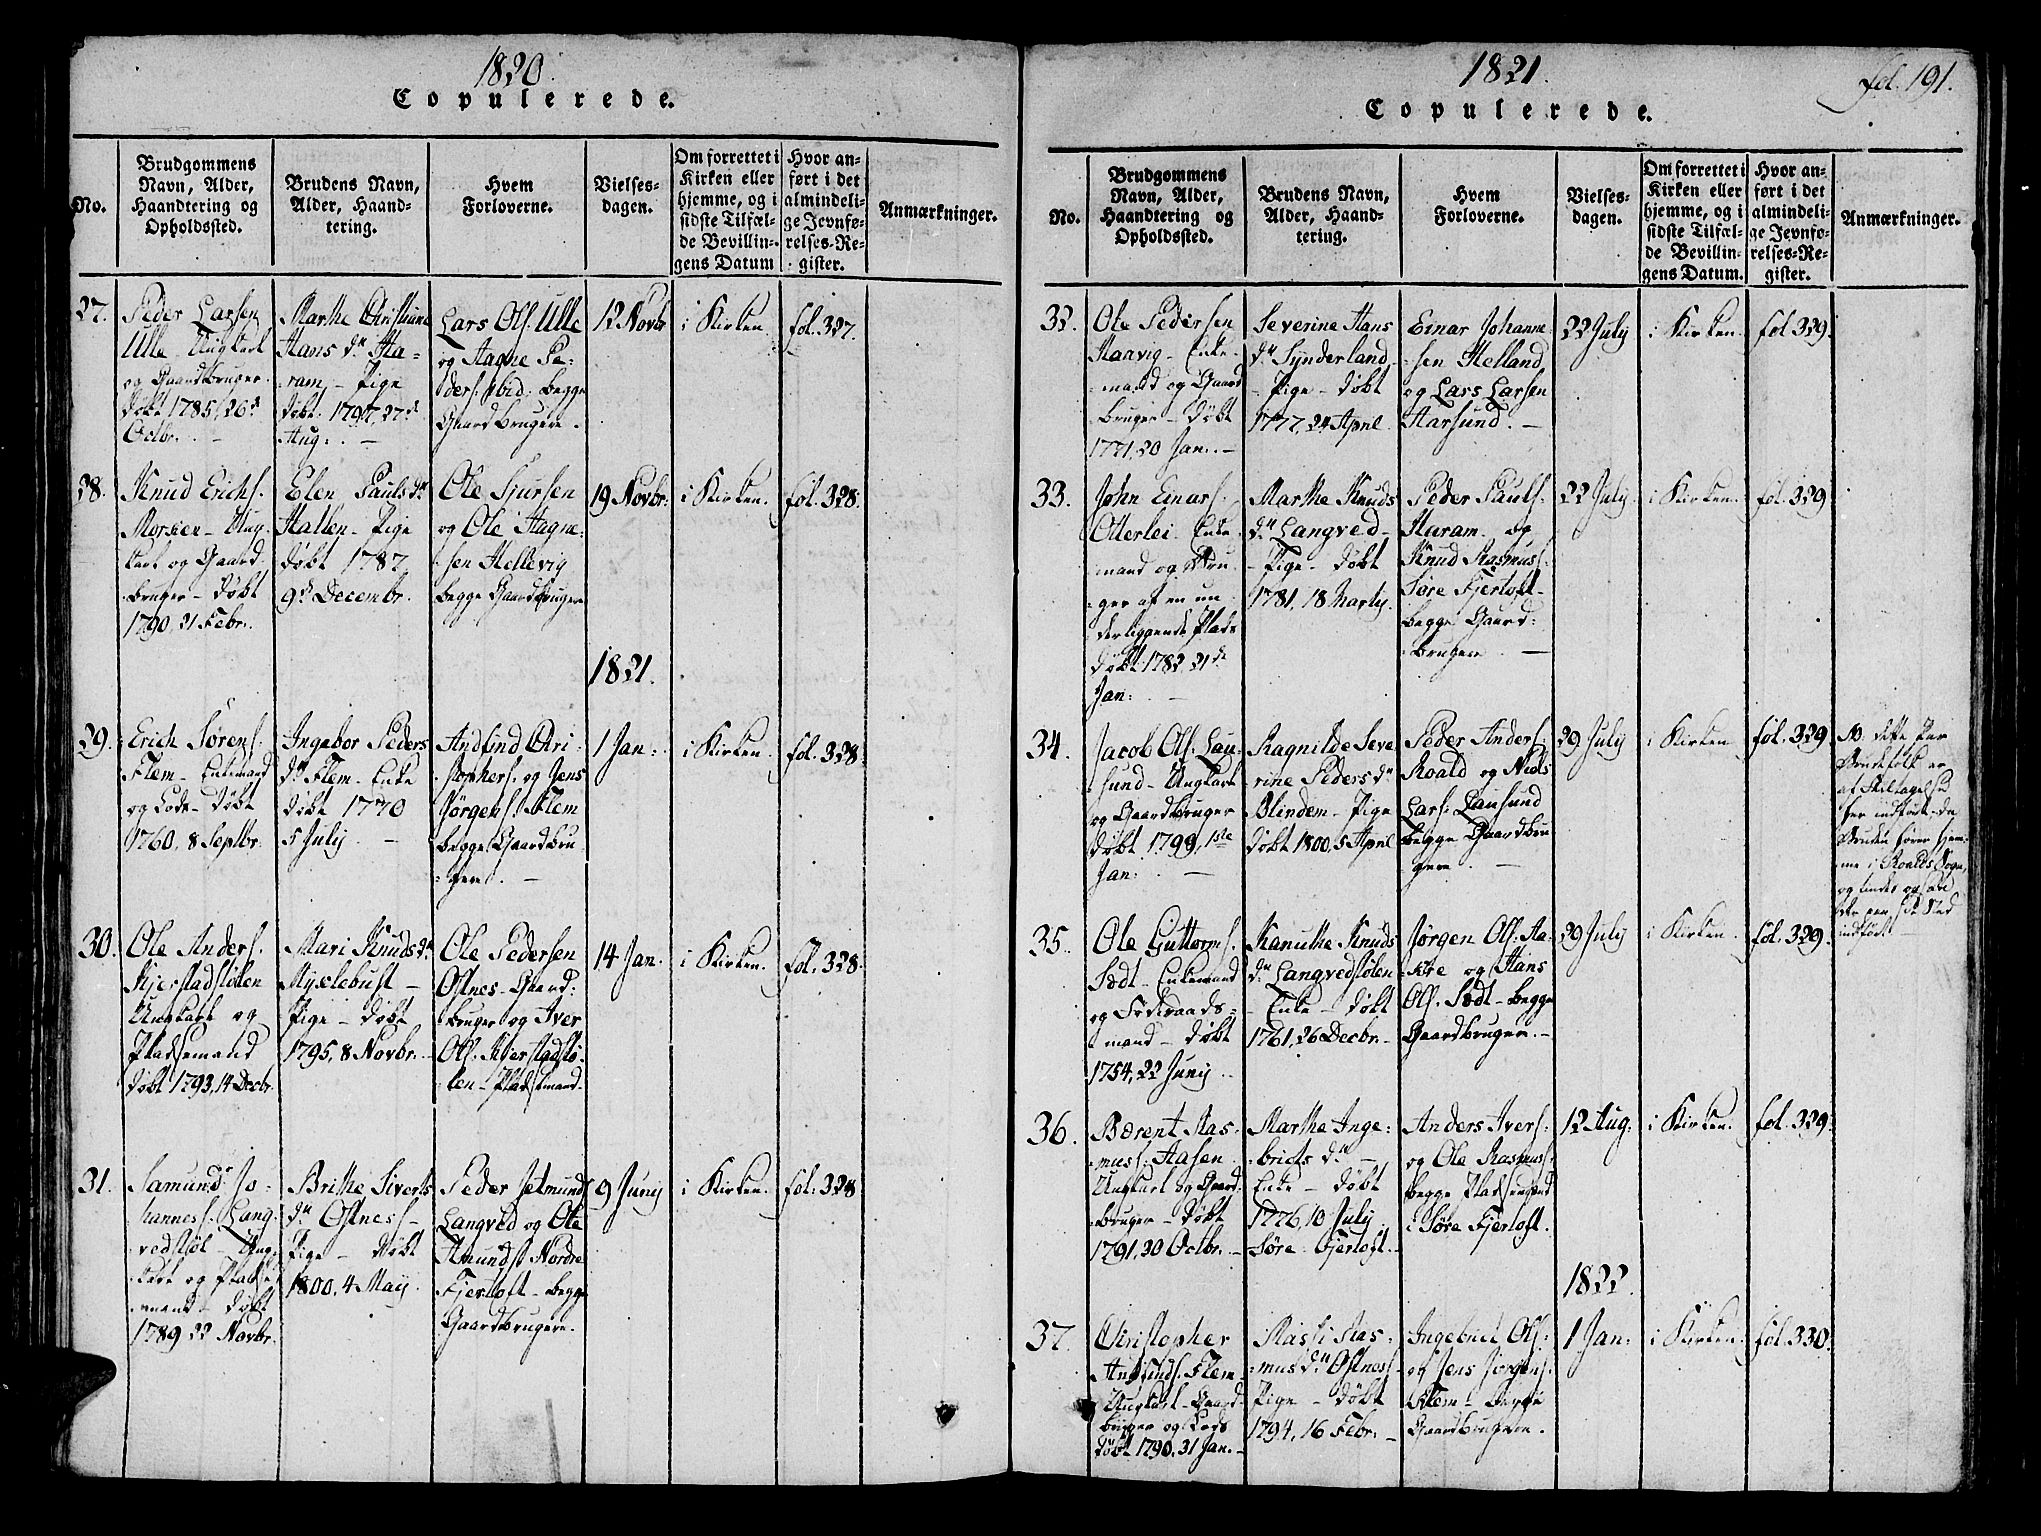 1820.
Copulerede.
No.
Brudgommens
Navn, Alder,
Haandtering og
Opholdssted.
Brudens Navn,
Alder, Haand-
tering.
Hvem
Forloverne.
Vielses-
dagen.
Om forrettet i
Kirken eller
hjemme, og i
sidste Tilfæl-
de Bevillin-
gens Datum
Hvor an-
ført i det
almindeli-
ge Jevnfø-
relses-Re-
gister.
Anmærkninger.
27.
Peder Larsen
Ulle Ungkarl
og Gaardbruger.
Døbt 1785, 26d
Octbr.
Marthe Christiane
Hans Dr Ha-
ram, - Pige
Døbt. 1797, 27de
Aug: . -
Lars Ols: Ulle
og Hagne Pe-
ders: ibid. begge
Gaardbrugere.
12 Novbr
i Kirken.
fol. 327.
28.
Knud Erichs:
Morsæn - Ung
karl og Gaard
bruger - Døbt
1790, 21 Febr.
Elen Pauls Dr
Hallen - Pige
Døbt 1787
9d Decembr.
Ole Sjursen
og Ole Hagne-
sen Hellevig
begge Gaardbrugere
19 Novbr.
i Kirken.
fol. 328.
1821.
29.
Erich Sørens:
Flem - Enkemand
og Lods - Døbt
1760, 8 Septbr.
Ingebor Peders
Dr Flem - Enke
Døbt 1770
5 July. -
Andfind Chri-
stophers: og Jens
Jørgens: Flem
begge Gaardbru
gere. -
1 Jan:
i Kirken.
fol. 328.
30.
Ole Anders:
Kjerstadstølen
Ungkarl og
Pladsemand
Døbt 1793, 14 Decbr.
Mari Knuds Dr
Myclebust -
Pige - Døbt
1795, 8 Novbr. -
Ole Pedersen
Ostnes - Gaard-
bruger og Iver
Ols: Kierstadstø-
len - Pladsemand
14 Jan.
i Kirken.
fol. 328.
31.
Samund Jo-
hannes: Lang-
vedstøl - Ung-
karl og Pladse-
mand - Døbt
1789 22 Novbr.
Brithe Siverts
Dr Ostness -
Pige - Døbt
1800, 4 Maij.
Peder Jetmunds
Langved og Ole
Amunds: Nordre
Fjertoft - begge
Gaardbrugere.
9 Junij
i Kirken.
fol: 328
1821.
fol. 191.
Copulerede.
No.
Brudgommens
Navn, Alder,
Haandtering og
Opholdssted.
Brudens Navn,
Alder, Haand-
tering.
Hvem
Forloverne.
Vielses-
dagen.
Om forrettet i
Kirken eller
hjemme, og i
sidste Tilfæl-
de Bevillin-
gens Datum.
Hvor an-
ført i det
almindeli-
ge Jevnfø-
relses-Re-
gister.
Anmærkninger.
32.
Ole Pedersen
Haavig - Enke-
mand og Gaard
bruger - Døbt
1771, 20 Jan. -
Severine Hans
Dr Synderland
- Pige - Døbt
1777, 24 April.
Einar Johanne-
sen Helland
og Lars Larsen
Aarsund. -
22 July
i Kirken.
fol. 329.
33.
John Einars:
Otterlei Enke-
mand og Bru-
ger af en un-
derliggende Plads
Døbt 1782 21de
Jan: -
Marthe Knuds
Dr Langved -
- Pige - Døbt
1781, 18 Martij.
Peder Pauls:
Huram. og
Knud Rasmus:
Søre Fjertoft -
begge Gaard-
brugere. -
22 July.
i Kirken.
fol. 329
34.
Jacob Ols: Lau-
sund - Ungkarl
og Gaardbruger
Døbt 1799, 1ste
Jan: -
Ragnilde Seve
rine Peders Dr
Blindem - Pige
Døbt 1800, 5 April
Peder Anders:
Roald og Niels
Lars: Lausund
begge Gaardbru
gere -
29 July
i Kirken
fol. 329.
NB. dette Par
Brudefolk er
her indført - da
Bruden hører hjem-
me i Roalds Sogn,
indført -
35.
Ole Guttorms:
Sædt - Enkemand
og Føderaads-
mand - Døbt
1754, 22 Junij
Kanuthe Knuds
Dr Langvedstølen
- Enke - Døbt
1761, 26 Decbr. -
Jørgen Ols: Aa-
kre og Hans
Ols: Sædt - begge
Gaardbrugere. -
29 July
i Kirken.
fol. 329.
36.
Bærent Ras-
mus: Aasen
Ungkarl og Gaard-
bruger - Døbt
1791, 30 Octbr. -
Marthe Inge-
bricts Dr -
Enke - Døbt
1776, 10 July
Søre Fjertoft. -
Anders Ivers:
og Ole Rasmus:
begge Pladsemænd
Søre Fjertoft.
12 Aug:
i Kirken.
fol. 329.
1822.
37.
Christopher
Andfinds: Flem -
Ungkarl - Gaard-
bruger og Lods
Døbt 1790, 31 Jan. -
Massi Ras-
mus Dr Ostness -
Pige - Døbt
1794, 16 Febr. -
Ingebrict Ols:
og Jens Jørgens:
Flem - begge
Gaardbrugere.
1 Jan:
i Kirken.
fol. 330.